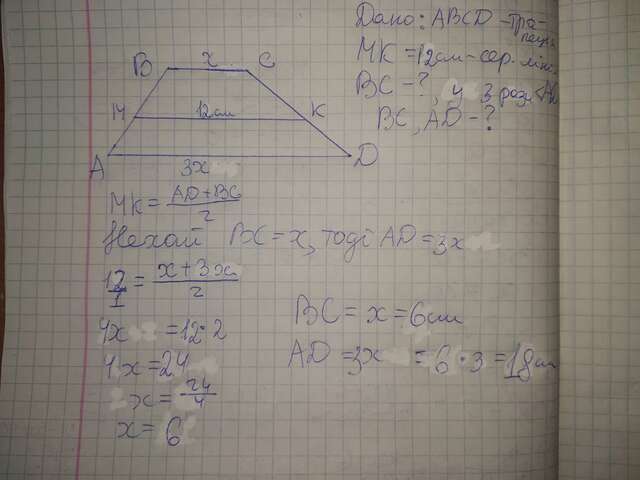 Дано: ABCD - тра-
пеція
MK = 12см - сер. ліні
BC - ?, у 3 рази <
BC, AD - ?
B x C
M 12см K
A 3x D
MK = AD + BC / 2
Нехай BC = x, тоді AD = 3x
12/1 = x + 3x / 2
4x = 12 · 2
4x = 24
x = 24/4
x = 6
BC = x = 6см
AD = 3x = 6 · 3 = 18см